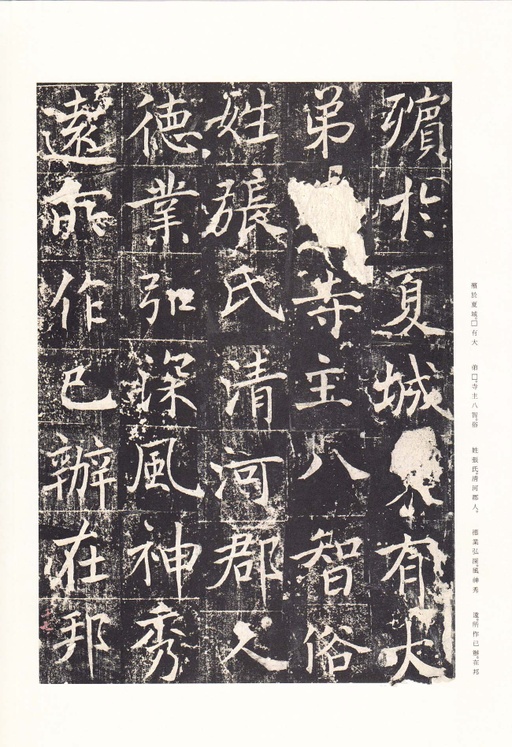 殯於夏城有大
弟寺主八智俗
姓張氏清河郡人
德業弘深風神秀
遠所作已辦在邦
殯於夏城□有大　弟□寺主八智俗　姓張氏、清河郡人。　德業弘深、風神秀　遠。所作已辦、在邦